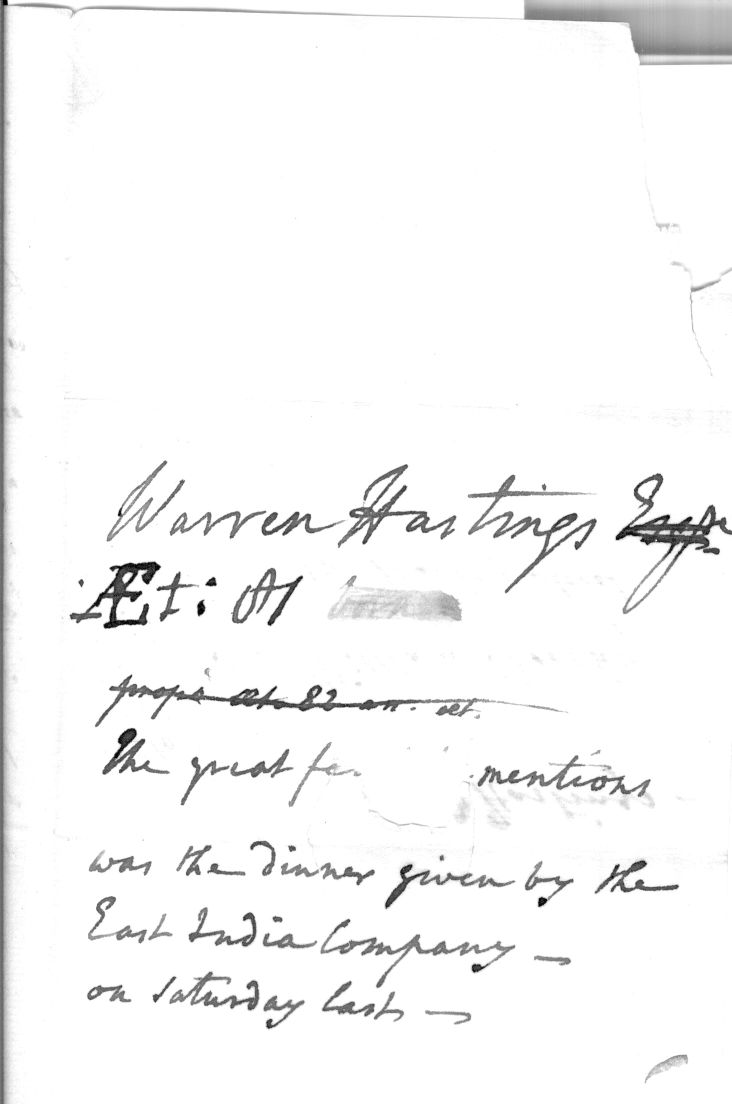 Warren Hastings Esqre
Æt: 81
props æt. 82 an. æt.
The great mentions
was the dinner given by the
East India Company —
on Saturday last —